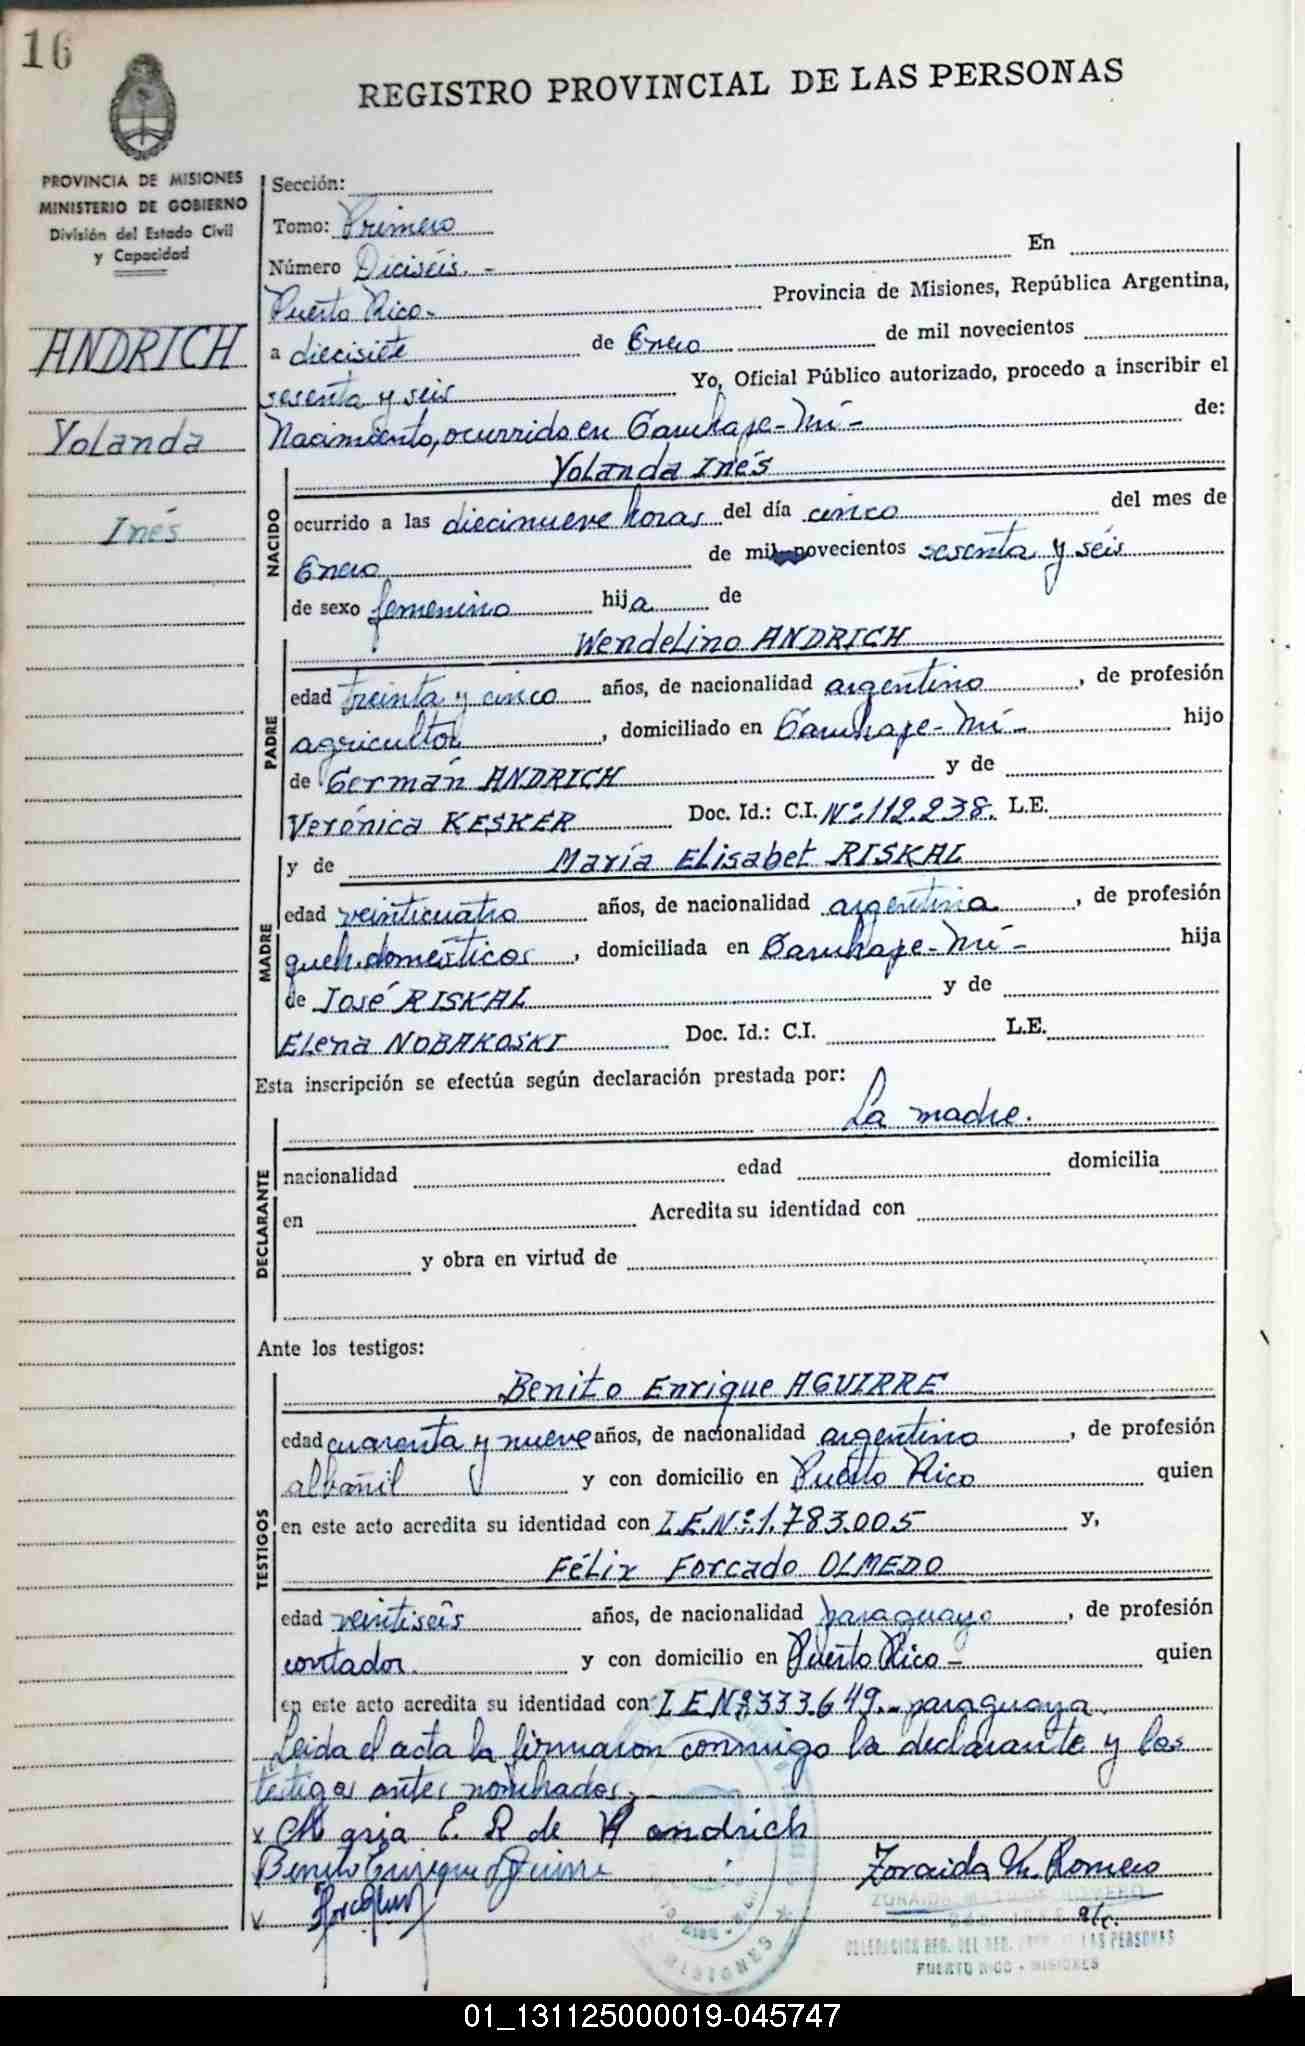 16
REGISTRO PROVINCIAL DE LAS PERSONAS
PROVINCIA DE MISIONES
MINISTERIO DE GOBIERNO
División del Estado Civil
y Capacidad
ANDRICH
Yolanda
Inés
Sección:
Tomo: Primero
Número Diciséis. - En
Puerto Rico- Provincia de Misiones, República Argentina,
a diecisiete de Enero de mil novecientos
sesenta y seis Yo, Oficial Público autorizado, procedo a inscribir el
Nacimiento, ocurrido en Caruhape-Mí- de:
NACIDO
Yolanda Inés
ocurrido a las diecinueve horas del día cinco del mes de
Enero de mil novecientos sesenta y séis
de sexo femenino hija de
PADRE
Wendelino ANDRICH
edad treinta y cinco años, de nacionalidad argentino, de profesión
agricultor, domiciliado en Caruhape-Mí- hijo
de Germán ANDRICH y de
Verónica KESKER Doc. Id.: C.I. Nº:112.238. L.E.
MADRE
y de María Elisabet RISKAL
edad veinticuatro años, de nacionalidad argentina, de profesión
queh. domésticos, domiciliada en Caruhape-Mí- hija
de José RISKAL y de
Elena NOBAKOSKI Doc. Id.: C.I. L.E.
Esta inscripción se efectúa según declaración prestada por:
DECLARANTE
La madre.
nacionalidad edad domicilia
en Acredita su identidad con
y obra en virtud de
Ante los testigos:
TESTIGOS
Benito Enrique AGUIRRE
edad cuarenta y nueve años, de nacionalidad argentino, de profesión
albañil y con domicilio en Puerto Rico quien
en este acto acredita su identidad con L.E.Nº:1.783.005 y,
Félix Forcado OLMEDO
edad veintiseis años, de nacionalidad paraguayo, de profesión
contador. y con domicilio en Puerto Rico- quien
en este acto acredita su identidad con L E Nº333.649.-paraguaya.
Leida el acta la firmaron conmigo la declarante y los
testigos antes nombrados,-
x Maria E. R de Handrich
Benito Enrique Aguirre
Zoraida M. Romero
DELEGACION REG. DEL REG. PROV. DE LAS PERSONAS
PUERTO RICO - MISIONES
MISIONES
01_131125000019-045747